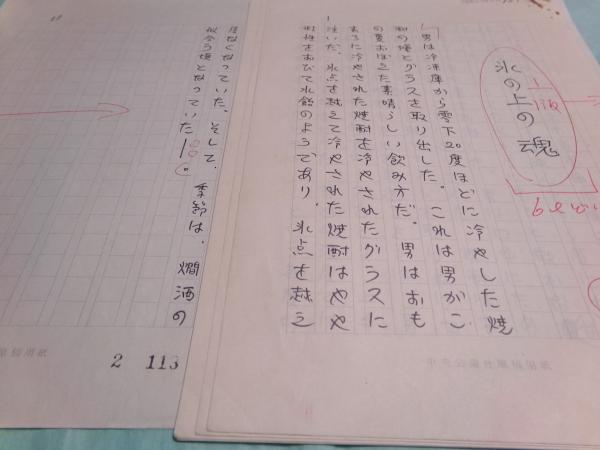 氷の上の魂
男は冷凍庫から零下20度ほどに冷やした焼
酎の壜とグラスを取り出した。これは男がこ
の夏おぼえた素晴らしい飲み方だ。男はおも
むろに冷やされた焼酎を冷やされたグラスに
注いだ。氷点を越えて冷やされた焼酎はやや
粘性をおびて水飴のようであり、氷点を越え
中央公論社原稿用紙
度なくなっていた。そして、季節は、燗酒の
似合う頃となっていた―。
原稿用紙
2 113